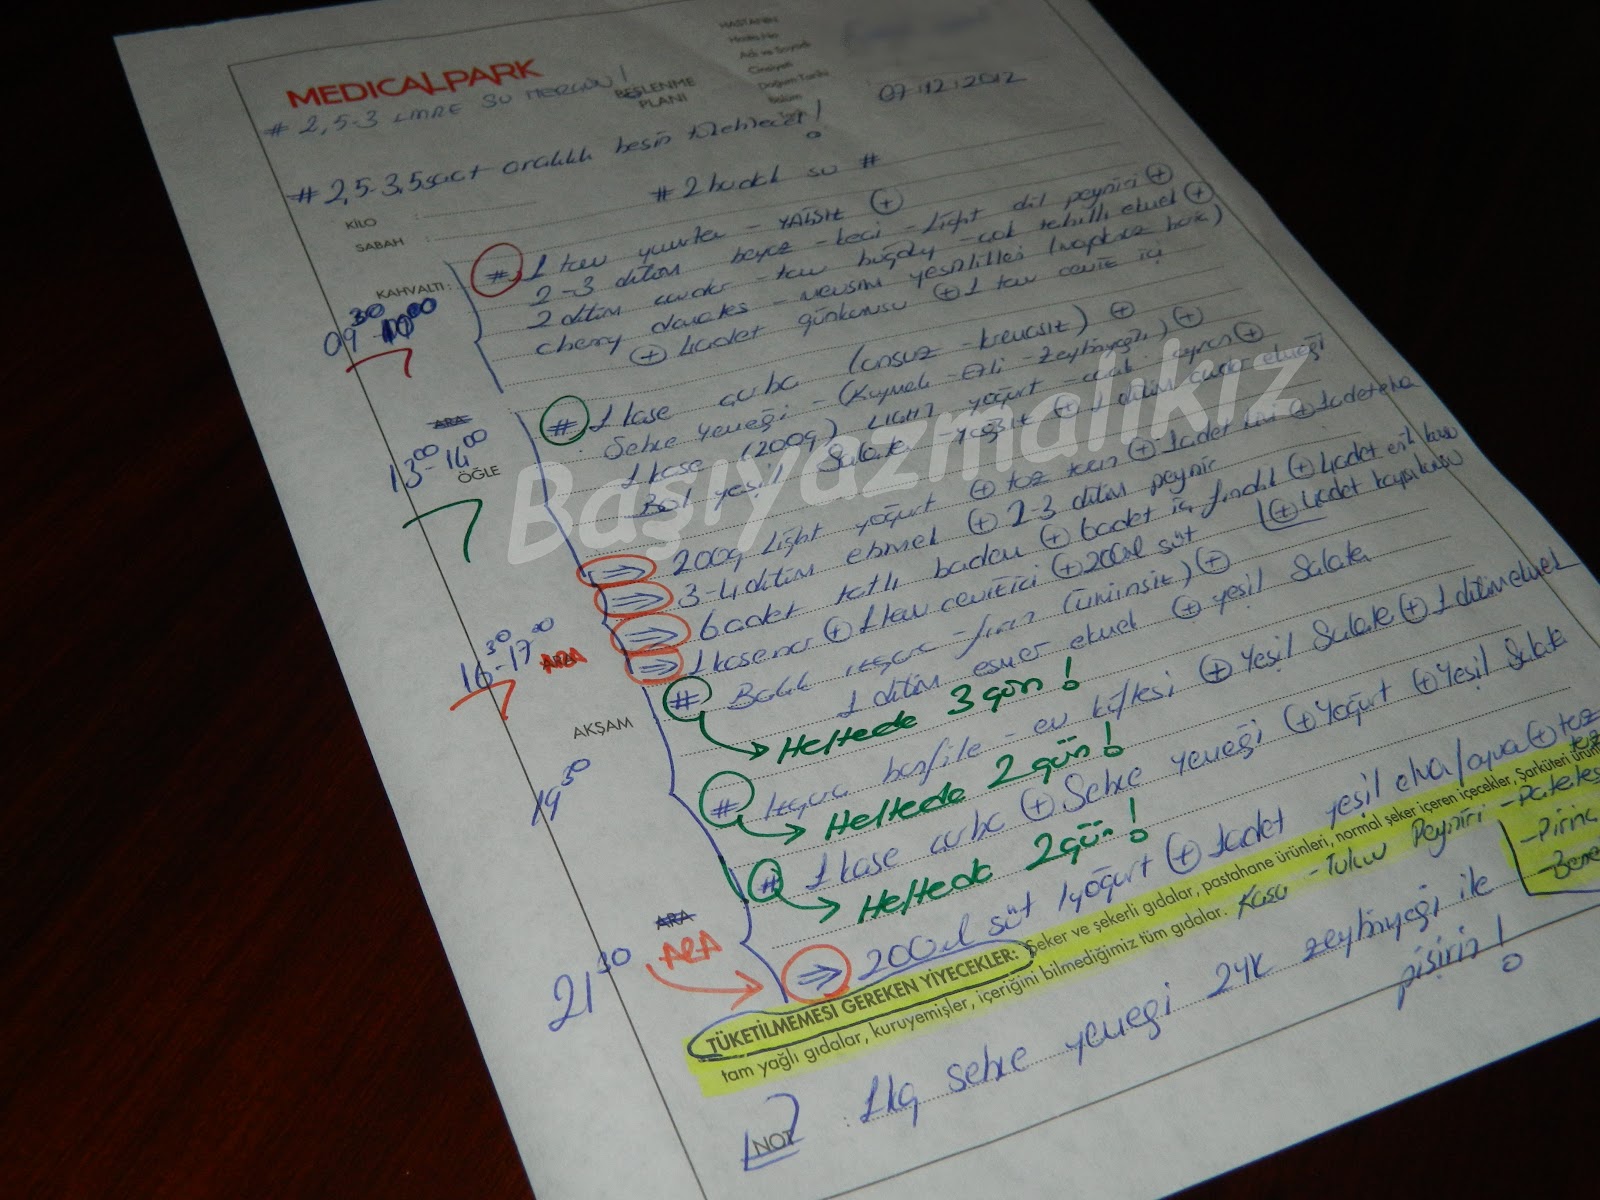 HASTANIN
Hasta No
Adı ve Soyadı
Cinsiyeti
Doğum Tarihi
Bölüm
MEDICALPARK
BESLENME
PLANI
07.12.2012
# 2,5-3 LİTRE SU HERGÜN!
# 2,5-3,5 saat aralıklı besin tüketilecek!
# 2 bardak su #
KİLO :
SABAH :
KAHVALTI :
09 30 - 00
# 1 tane yumurta - YAĞSIZ +
2-3 dilim beyaz - keçi - light dil peyniri +
2 dilim çavdar - tam buğday - çok tahıllı ekmek +
cherry domates - mevsim yeşillikleri (maydanoz hariç)
+ 4 adet gün kurusu + 1 tam ceviz içi
ARA
13 00 - 14 00
ÖĞLE
# 1 kase çorba (unsuz - kremasız) +
Sebze yemeği - (Kıymalı - Etli - zeytinyağlı) +
1 kase (200g) LIGHT yoğurt - ayran +
Bol yeşil salata yağsız + 1 dilim çavdar ekmeği
Başıyazmalıkız
⇒ 200g light yoğurt + toz tarçın + 1 adet kivi + 1 adet elma
⇒ 3-4 dilim etimek + 2-3 dilim peynir
⇒ 6 adet tatlı badem + 6 adet iç fındık + 4 adet erik kurusu
⇒ 1 kase nar + 1 tam ceviz içi + 200ml süt + 4 adet kayısı kurusu
16 30 - 17 00
ARA
AKŞAM
19 30
# Balık ızgara - fırın (ürünsüz) +
1 dilim esmer ekmek + yeşil salata
Haftada 3 gün!
# Izgara bonfile - ev köftesi + Yeşil Salata + 1 dilim ekmek
Haftada 2 gün!
# 1 kase çorba + Sebze yemeği + Yoğurt + Yeşil Salata
Haftada 2 gün!
ARA
ARA
21 30
⇒ 200ml süt / yoğurt + 1 adet yeşil elma / ayva + toz
TÜKETİLMEMESİ GEREKEN YİYECEKLER: Şeker ve şekerli gıdalar, pastahane ürünleri, normal şeker içeren içecekler, Şarküteri
tam yağlı gıdalar, kuruyemişler, içeriğini bilmediğimiz tüm gıdalar. Kaşar - Tulum Peyniri - Patates
- Pirinç
NOT : 1kg sebze yemeği 2 YK zeytinyağı ile
pişirin!